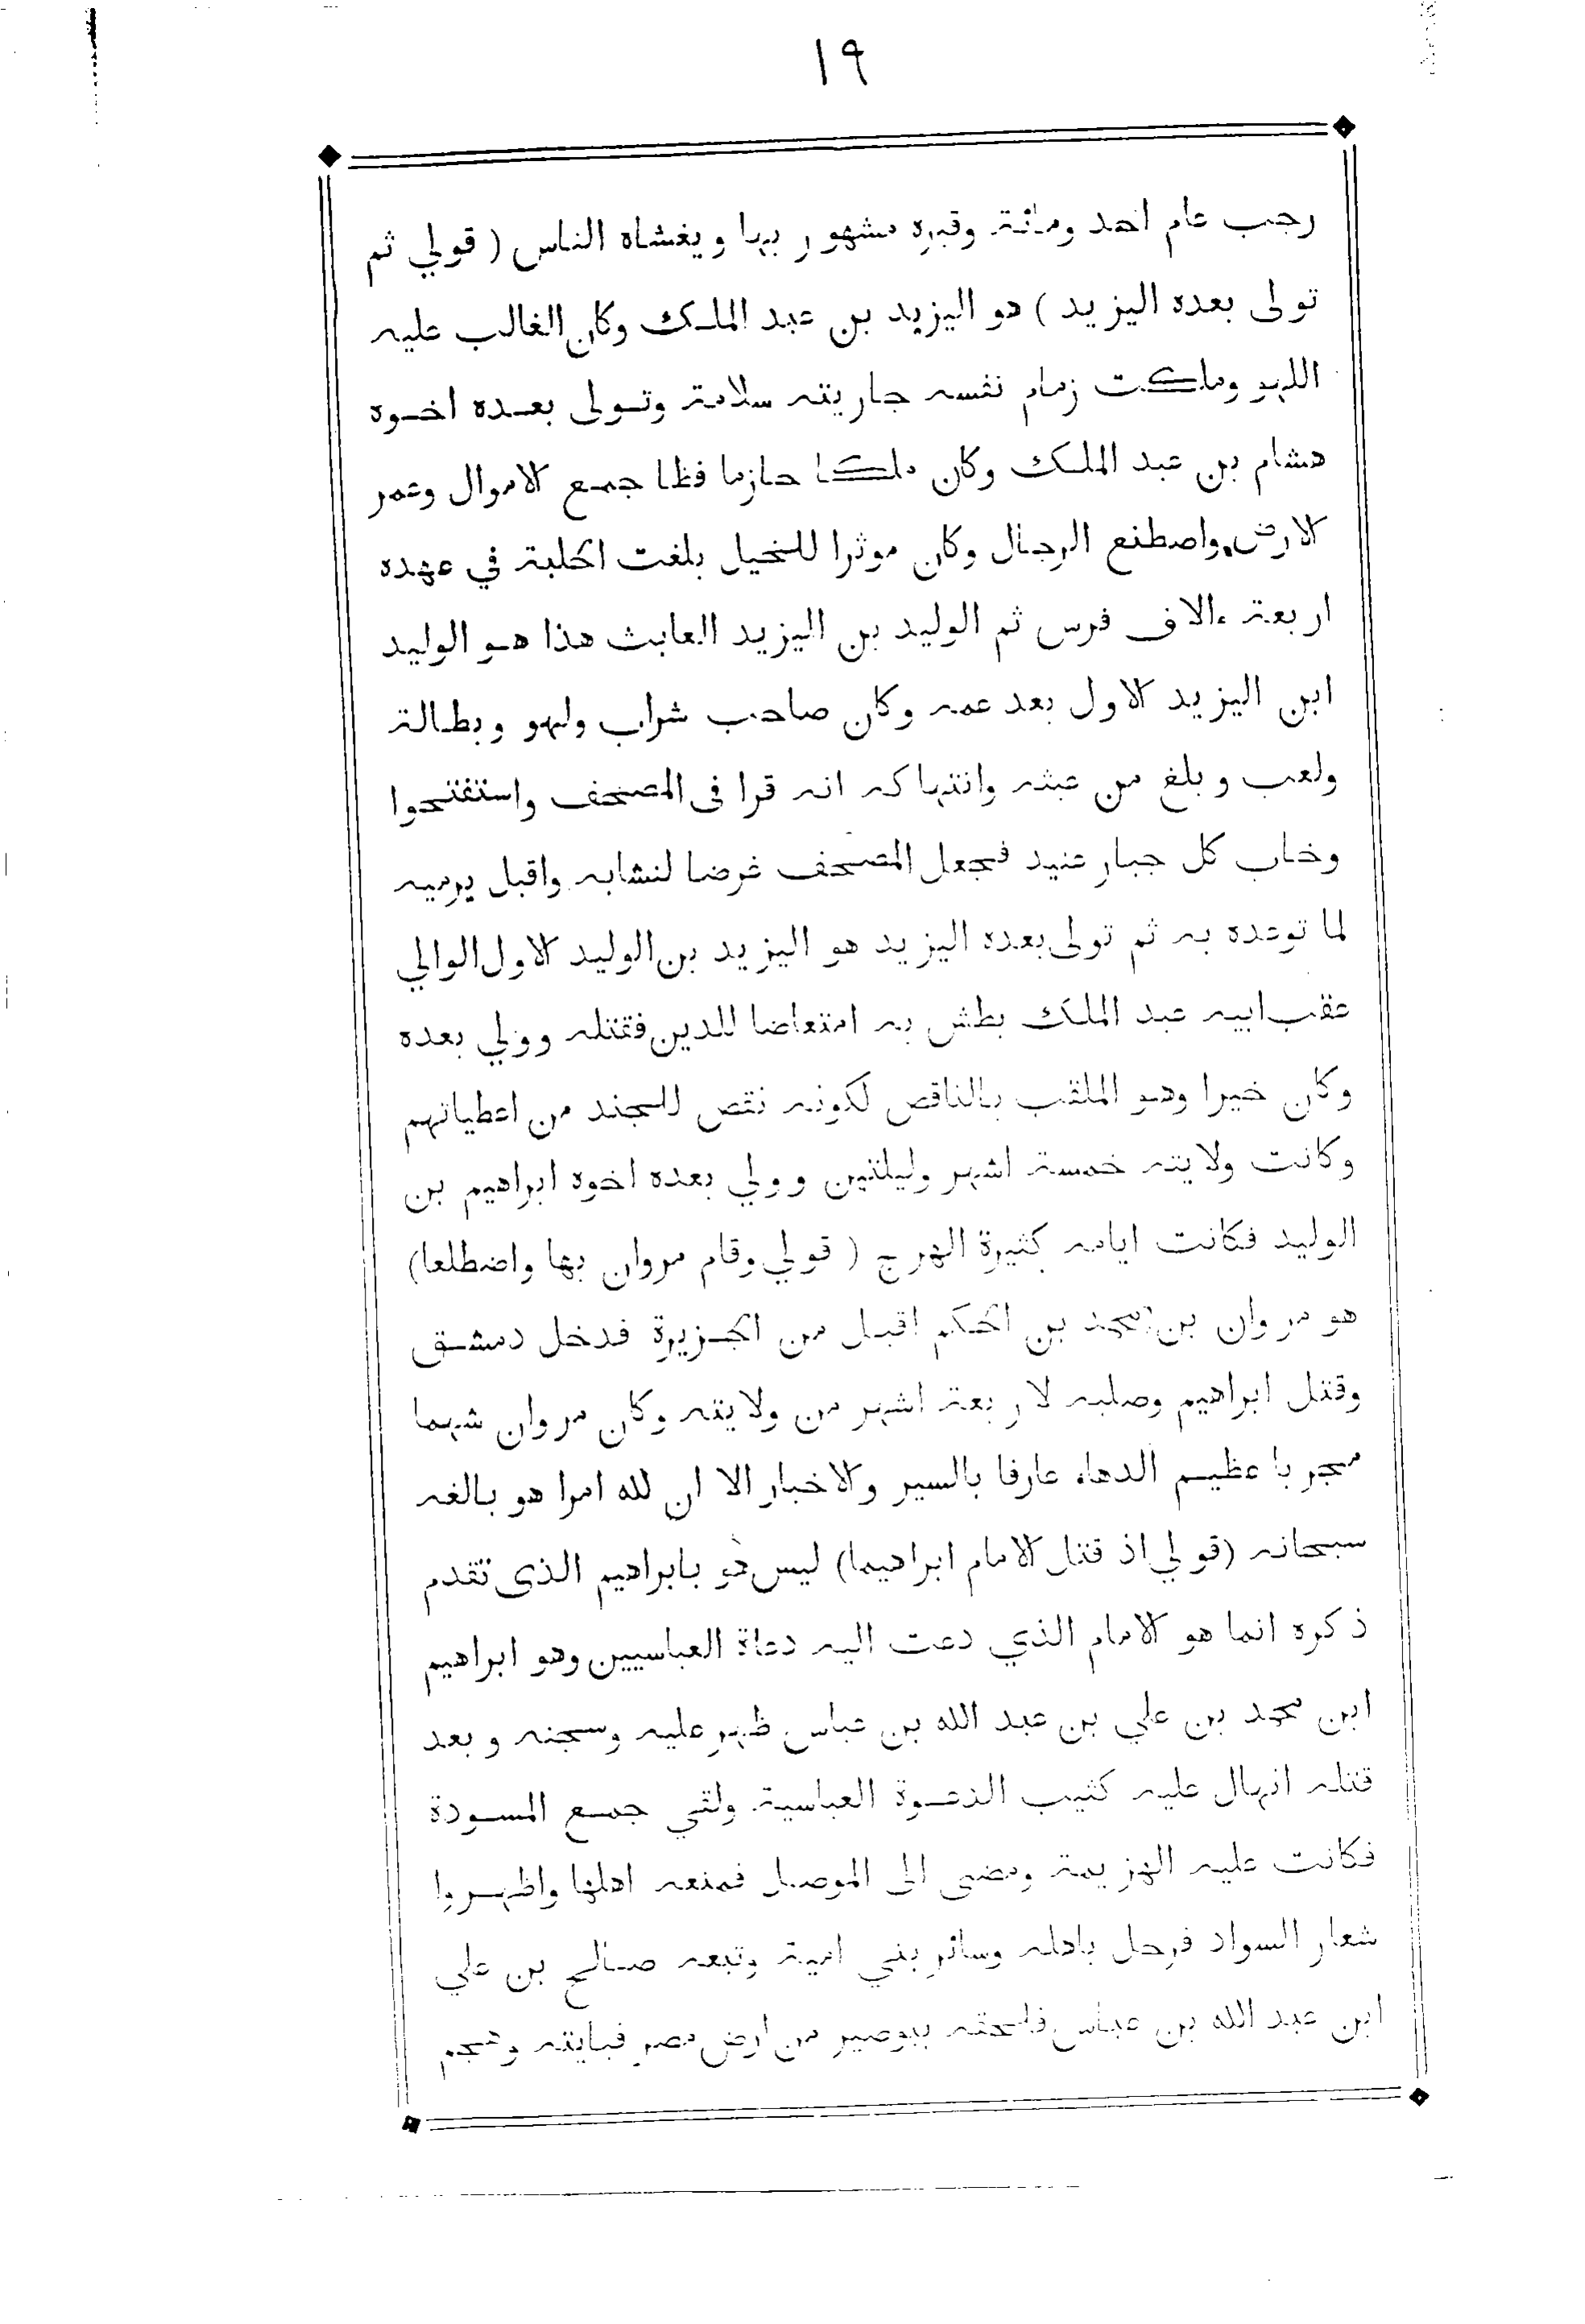 ١٩
رجب عام احد ومائة وقبره مشهور بها ويغشاه الناس ( قولي ثم
تولى بعده اليزيد ) هو اليزيد بن عبد الملك وكان الغالب عليه
اللهو وملكت زمام نفسه جاريته سلامة وتولى بعده اخوه
هشام بن عبد الملك وكان ملكا حازما فظا جمع الاموال وعمر
الارض واصطنع الرجال وكان موثرا للخيل بلغت الحلبة في عهده
اربعة ءالاف فرس ثم الوليد بن اليزيد العابث هذا هو الوليد
ابن اليزيد الاول بعد عمه وكان صاحب شراب ولهو وبطالة
ولعب وبلغ من عبثه وانتهاكه انه قرا فى المصحف واستفتحوا
وخاب كل جبار عنيد فجعل المصحف غرضا لنشابه واقبل يرميه
لما توعده به ثم تولى بعده اليزيد هو اليزيد بن الوليد الاول الوالي
عقب ابيه عبد الملك بطش به امتعاضا للدين فقتله وولي بعده
وكان خيرا وهو الملقب بالناقص لكونه نقص للجند من اعطياتهم
وكانت ولايته خمسة اشهر وليلتين وولي بعده اخوه ابراهيم بن
الوليد فكانت ايامه كثيرة الهرج ( قولي وقام مروان بها واضطلعا)
هو مروان بن محمد بن الحكم اقبل من الجزيرة فدخل دمشق
وقتل ابراهيم وصلبه لاربعة اشهر من ولايته وكان مروان شهما
مجربا عظيم الدهاء عارفا بالسير والاخبار الا ان لله امرا هو بالغه
سبحانه (قولي اذ قتل الامام ابراهيما) ليس هو بابراهيم الذى تقدم
ذكره انما هو الامام الذي دعت اليه دعاة العباسيين وهو ابراهيم
ابن محمد بن علي بن عبد الله بن عباس ظهر عليه وسجنه وبعد
قتله انهال عليه كثيب الدعوة العباسية ولقي جمع المسودة
فكانت عليه الهزيمة ومضى الى الموصل فمنعه اهلها واظهروا
شعار السواد فرحل باهله وسائر بني امية وتبعه صالح بن علي
ابن عبد الله بن عباس فلحقه ببوصير من ارض مصر فبايته وهجم